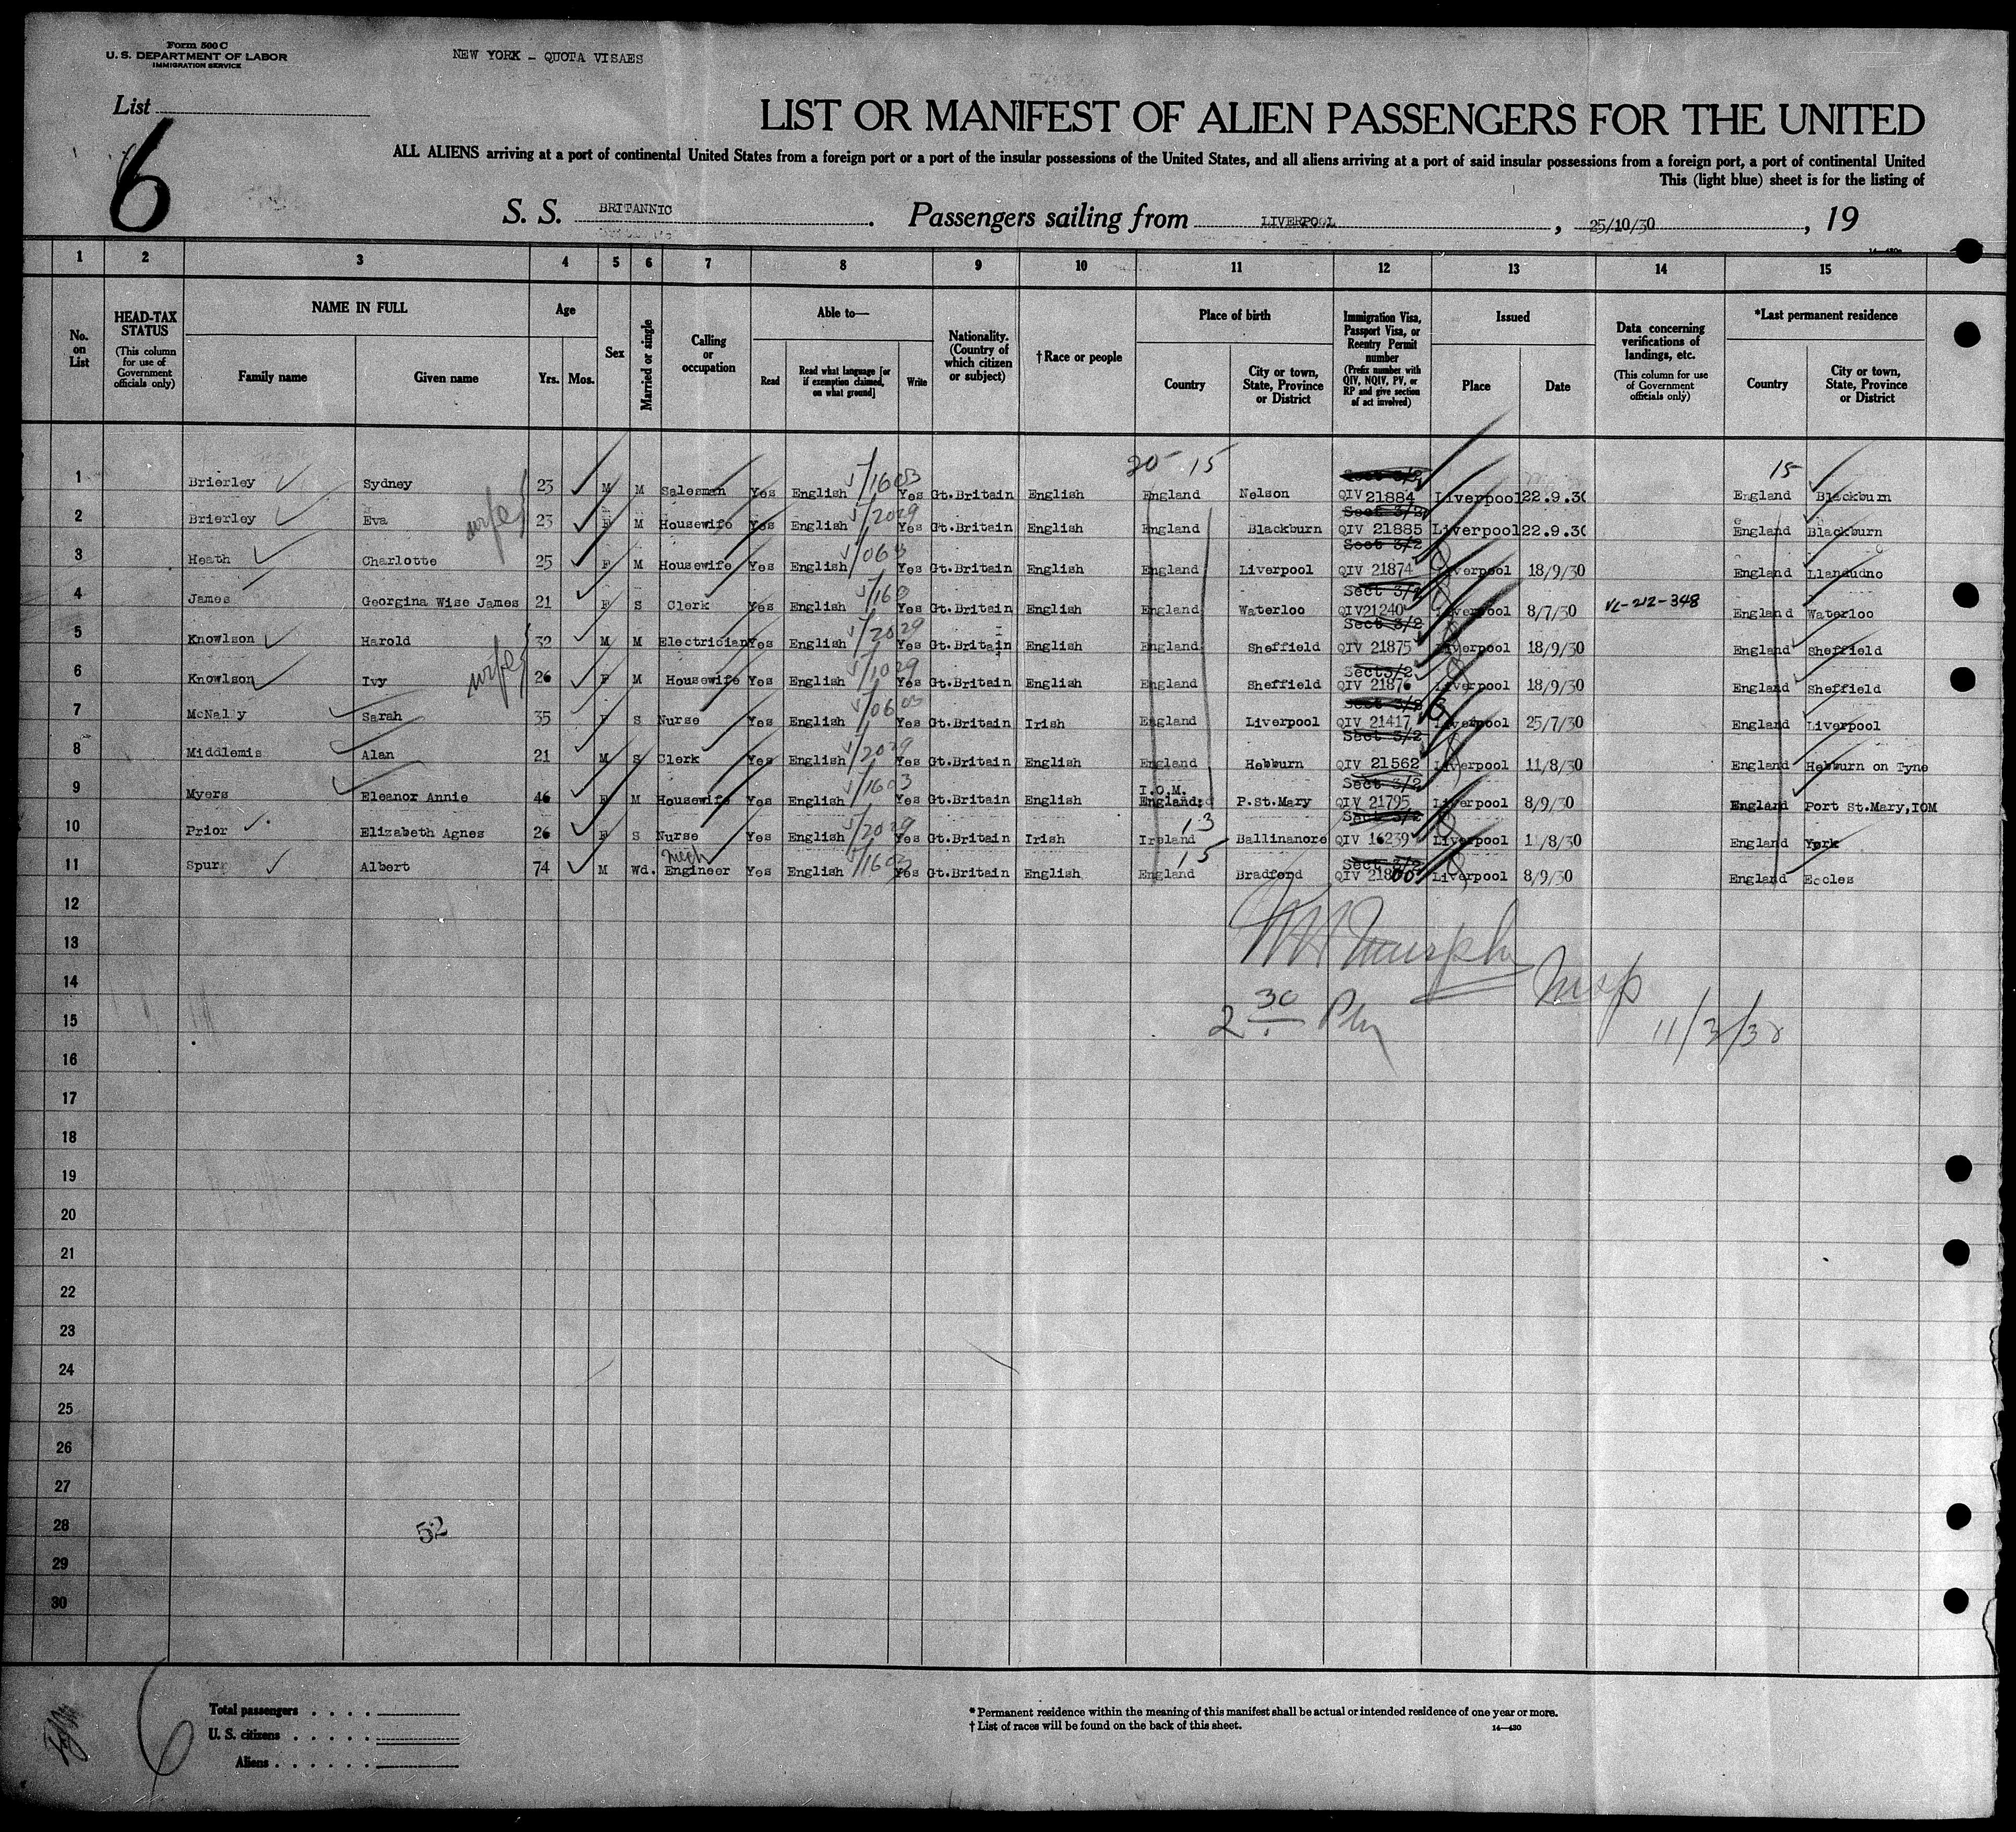 Form 500 C
U. S. DEPARTMENT OF LABOR
IMMIGRATION SERVICE
NEW YORK - QUOTA VISAES
List
6
LIST OR MANIFEST OF ALIEN PASSENGERS FOR THE UNITED
ALL ALIENS arriving at a port of continental United States from a foreign port or a port of the insular possessions of the United States, and all aliens arriving at a port of said insular possessions from a foreign port, a port of continental United
This (light blue) sheet is for the listing of
S. S. BRITANNIC. Passengers sailing from LIVERPOOL, 25/10/30, 19
1 2 3 4 5 6 7 8 9 10 11 12 13 14 15
No. on List
HEAD-TAX STATUS (This column for use of Government officials only)
NAME IN FULL Family name Given name
Age Yrs. Mos.
Sex
Married or single
Calling or occupation
Able to— Read Read what language [or if exemption claimed, on what ground] Write
Nationality. (Country of which citizen or subject)
†Race or people
Place of birth Country City or town, State, Province or District
Immigration Visa, Passport Visa, or Reentry Permit number (Prefix number with QIV, NQIV, PV, or RP and give section of act involved)
Issued Place Date
Data concerning verifications of landings, etc. (This column for use of Government officials only)
*Last permanent residence Country City or town, State, Province or District
20 15 15
1 Brierley Sydney 23 M M Salesman Yes English Yes Gt.Britain English England Nelson QIV 21884 Liverpool 22.9.30 England Blackburn
2 Brierley Eva wife 23 F M Housewife Yes English Yes Gt.Britain English England Blackburn QIV 21885 Liverpool 22.9.30 England Blackburn
3 Heath Charlotte 25 F M Housewife Yes English Yes Gt.Britain English England Liverpool QIV 21874 Liverpool 18/9/30 England Llandudno
4 James Georgina Wise James 21 F S Clerk Yes English Yes Gt.Britain English England Waterloo QIV21240 Liverpool 8/7/30 VL-212-348 England Waterloo
5 Knowlson Harold 32 M M Electrician Yes English Yes Gt.Britain English England Sheffield QIV 21875 Liverpool 18/9/30 England Sheffield
6 Knowlson Ivy wife 26 F M Housewife Yes English Yes Gt.Britain English England Sheffield QIV 21876 Liverpool 18/9/30 England Sheffield
7 McNally Sarah 35 F S Nurse Yes English Yes Gt.Britain Irish England Liverpool QIV 21417 Liverpool 25/7/30 England Liverpool
8 Middlemis Alan 21 M S Clerk Yes English Yes Gt.Britain English England Hebburn QIV 21562 Liverpool 11/8/30 England Hebburn on Tyne
9 Myers Eleanor Annie 46 F M Housewife Yes English Yes Gt.Britain English I.O.M. England P.St.Mary QIV 21795 Liverpool 8/9/30 England Port St.Mary,IOM
10 Prior Elizabeth Agnes 26 F S Nurse Yes English Yes Gt.Britain Irish 13 Ireland Ballinanore QIV 16239 Liverpool 11/8/30 England York
11 Spurr Albert 74 M Wd. Mech Engineer Yes English Yes Gt.Britain English 15 England Bradford Liverpool 8/9/30 England Eccles
12
13
14
2 30 Pm
15
16
17
18
19
20
21
22
23
24
25
26
27
28 52
29
30
6
Total passengers
U. S. citizens
Aliens
* Permanent residence within the meaning of this manifest shall be actual or intended residence of one year or more.
† List of races will be found on the back of this sheet.
14—430